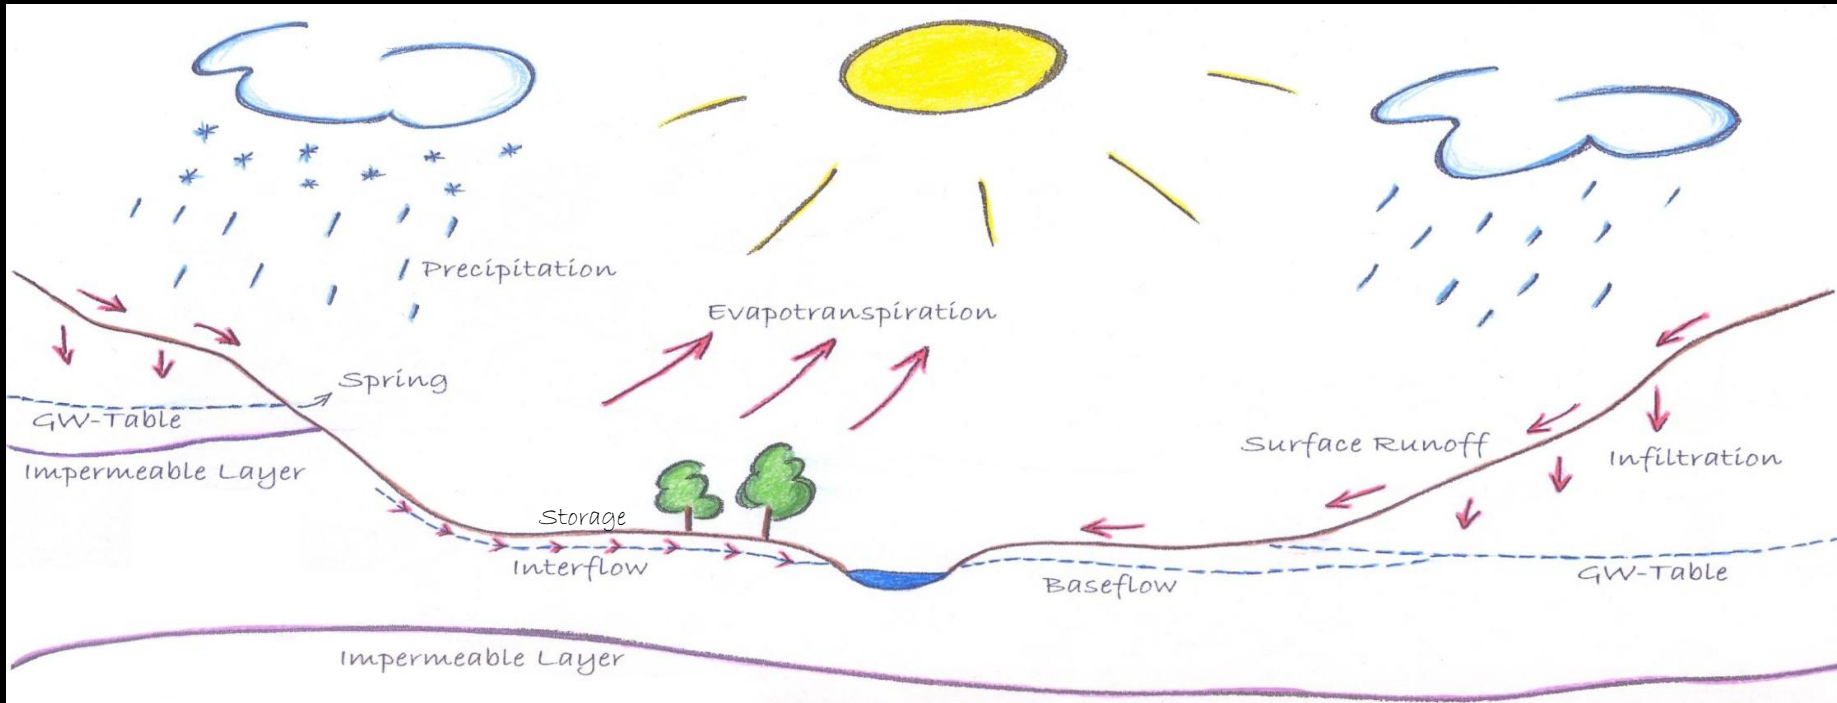 Precipitation
Evapotranspiration
Spring
GW-Table
Impermeable Layer
Surface Runoff
Infiltration
Storage
Interflow
Baseflow
GW-Table
Impermeable Layer